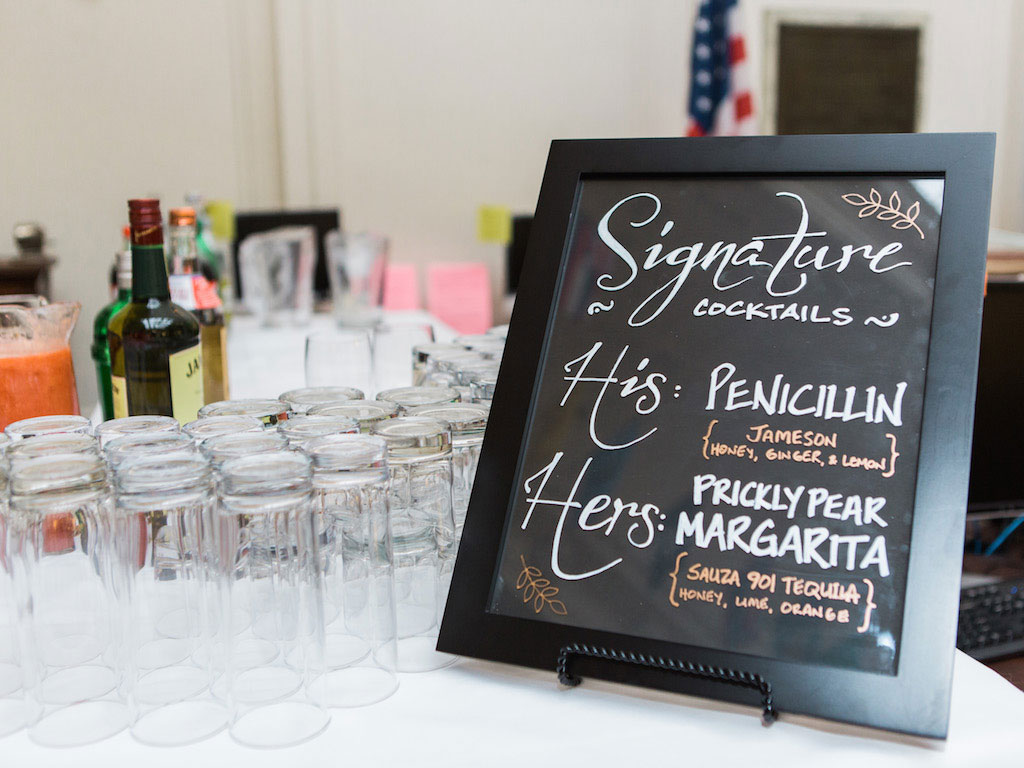 Signature
COCKTAILS
His: PENICILLIN
{JAMESON
HONEY, GINGER, & LEMON}
Hers: PRICKLY PEAR
MARGARITA
{SAUZA 901 TEQUILA
HONEY, LIME, ORANGE}
JA